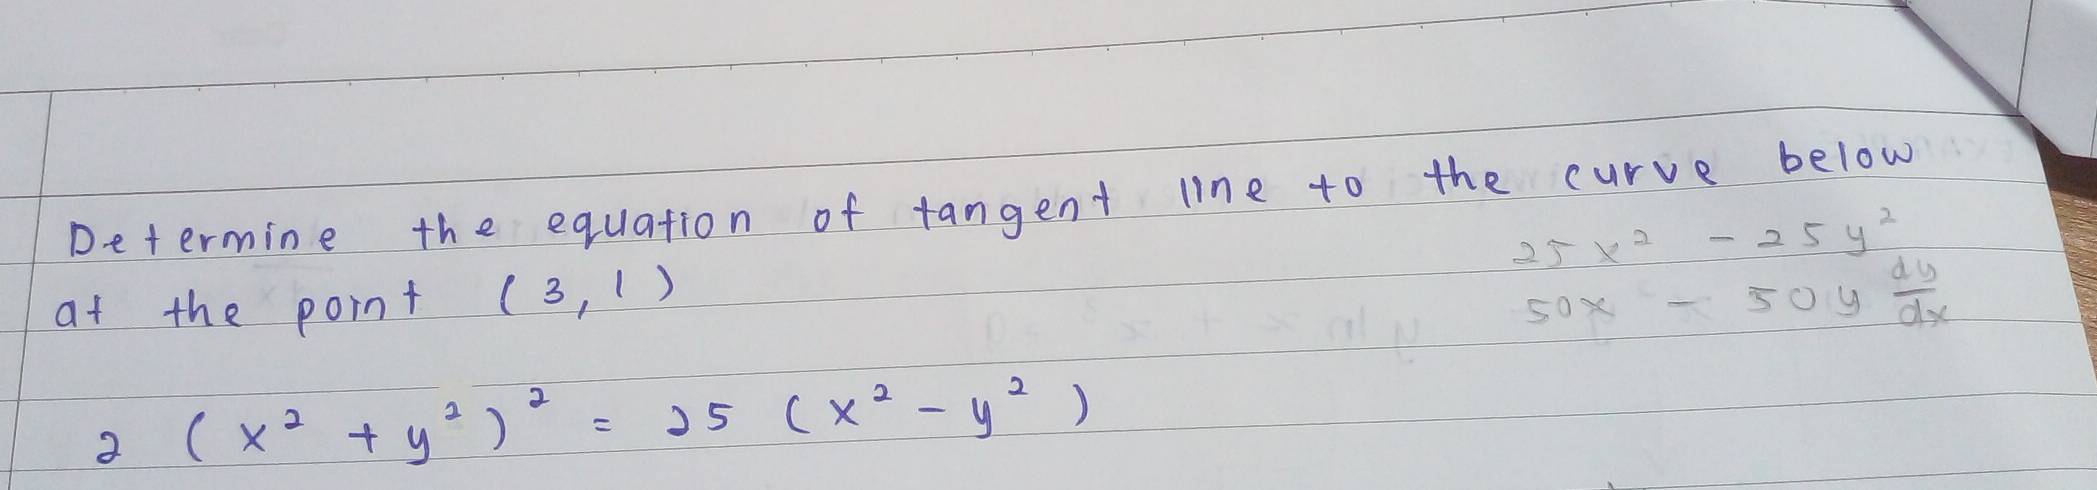 Determine the equation of tangent line to the curve below
at the point (3,1)
25x² - 25y²
50x - 50y dy/dx
2 (x² + y²)² = 25 (x² - y²)